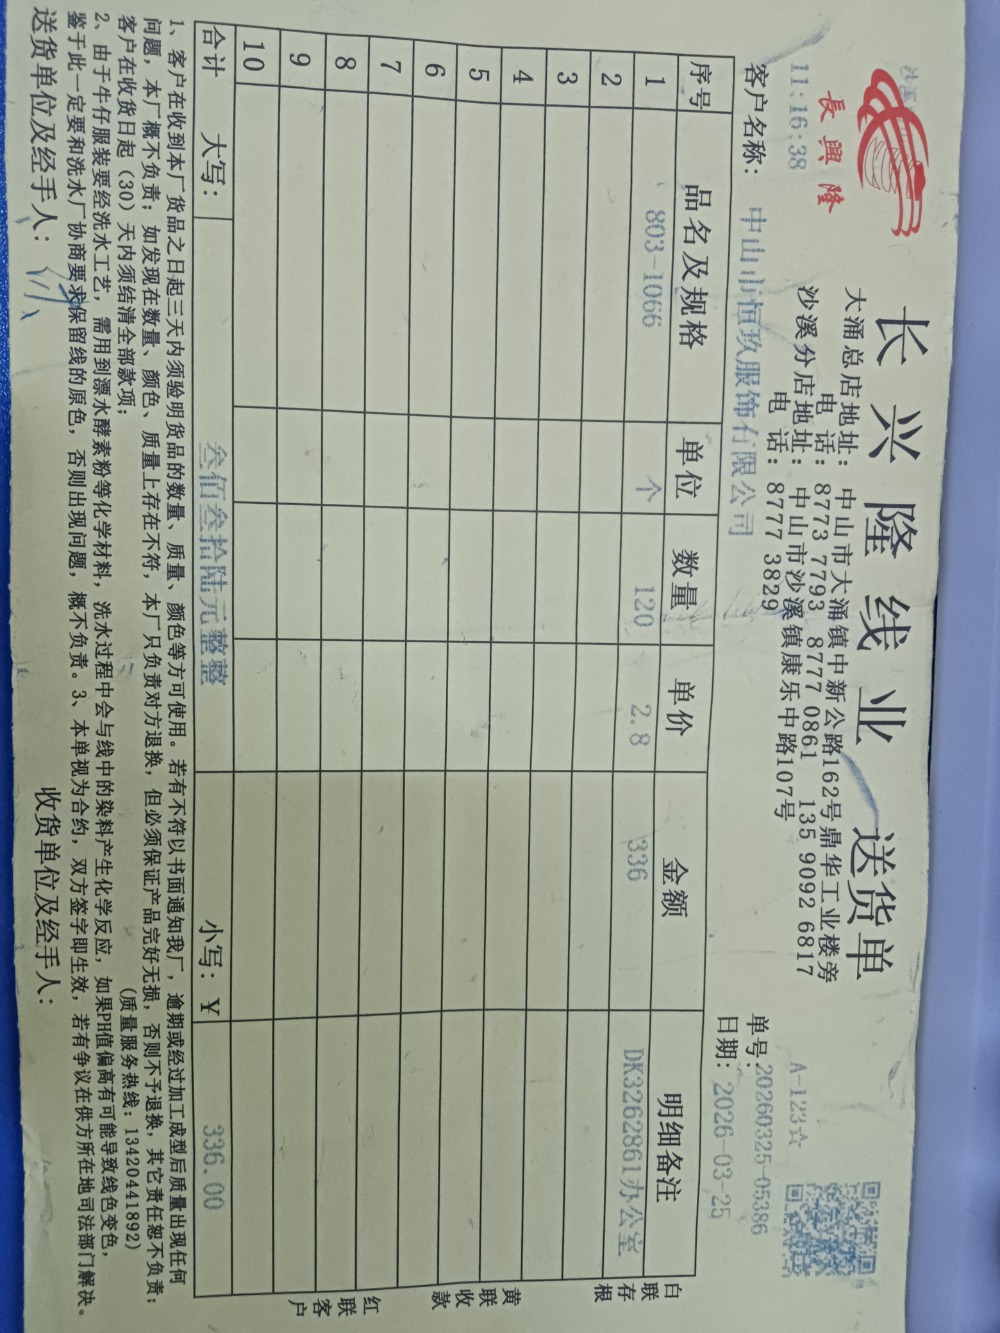 長興隆
长兴隆线业 送货单
A-123☆
11:16:38
大涌总店地址: 中山市大涌镇中新公路162号鼎华工业楼旁
电 话: 8773 7793 8777 0861 135 9092 6817
沙溪分店地址: 中山市沙溪镇康乐中路107号
电 话: 8777 3829
单号: 20260325-05386
客户名称: 中山市恒玖服饰有限公司
日期: 2026-03-25
序号 品名及规格 单位 数量 单价 金额 明细备注
1 803-1066 个 120 2.8 336 DK3262861办公室
2
3
4
5
6
7
8
9
10
合计 大写: 叁佰叁拾陆元整整 小写: ¥ 336.00
白联存根
黄联收款
红联客户
1、客户在收到本厂货品之日起三天内须验明货品的数量、质量、颜色等方可使用。若有不符以书面通知我厂，逾期或经过加工成型后质量出现任何
问题，本厂概不负责；如发现在数量、颜色、质量上存在不符，本厂只负责对方退换，但必须保证产品完好无损，否则不予退换，其它责任恕不负责；
客户在收货日起（30）天内须结清全部款项； (质量服务热线: 13420441892)
2、由于牛仔服装要经洗水工艺，需用到漂水酵素粉等化学材料，洗水过程中会与线中的染料产生化学反应，如果PH值偏高有可能导致线色变色，
鉴于此一定要和洗水厂协商要求保留线的原色，否则出现问题，概不负责。3、本单视为合约，双方签字即生效，若有争议在供方所在地司法部门解决。
送货单位及经手人: 收货单位及经手人: